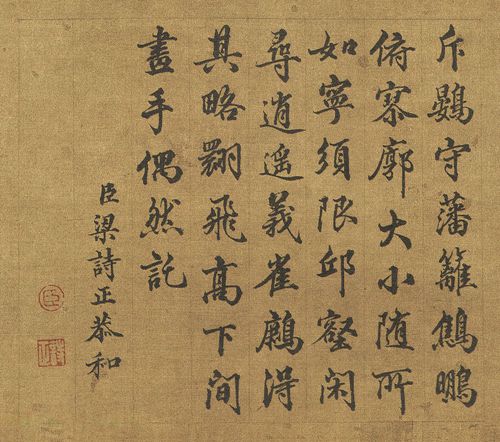 斥鷃守藩籬鷦鵬
俯寥廓大小随所
如寧須限邱壑閑
尋逍遥義雀得
其略翾飛高下間
畫手偶然託
臣梁詩正恭和
臣